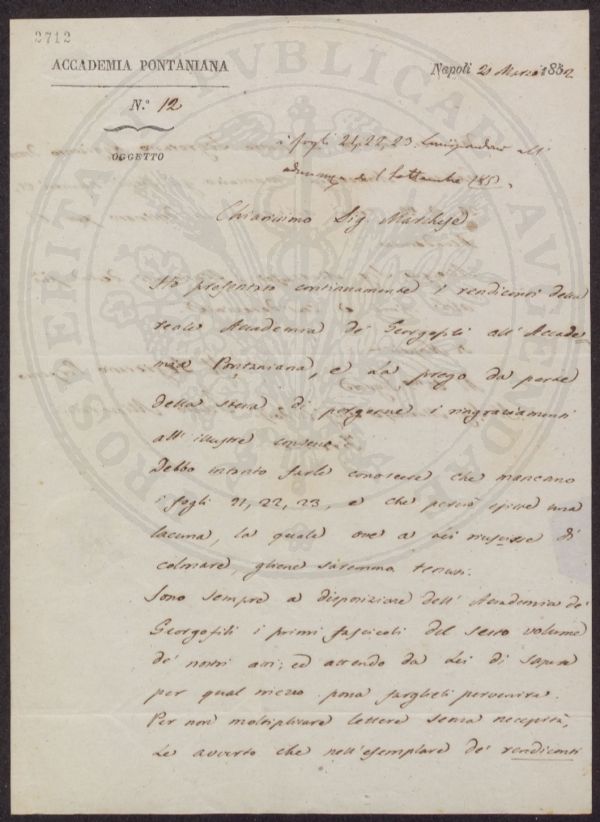 2712
ACCADEMIA PONTANIANA
Napoli 21 Marzo 1852
N.° 12
OGGETTO
i fogli 21, 22, 23 all'
adunanza del Settembre 185
Chiarissimo Sig. Marchese
Ho presentato i rendiconti della
reale Accademia de' Georgofili all'Accade
mia Pontaniana, e La prego da parte
della stessa di porgerne i ringraziamenti
all'illustre consesso.
Debbo intanto farle conoscere che mancano
i fogli 21, 22, 23, e che perciò esiste una
lacuna, la quale ove a Lei riuscisse di
colmare, gliene saremmo tenuti.
Sono sempre a disposizione dell'Accademia de'
Georgofili i primi fascicoli del sesto volume
de' nostri atti; ed attendo da Lei di sapere
per qual mezzo possa farglieli pervenire.
Per non moltiplicare lettere senza necessità,
Le avverto che nell'esemplare de' rendiconti
PROSPERITATI PVBLICAE AVGENDAE